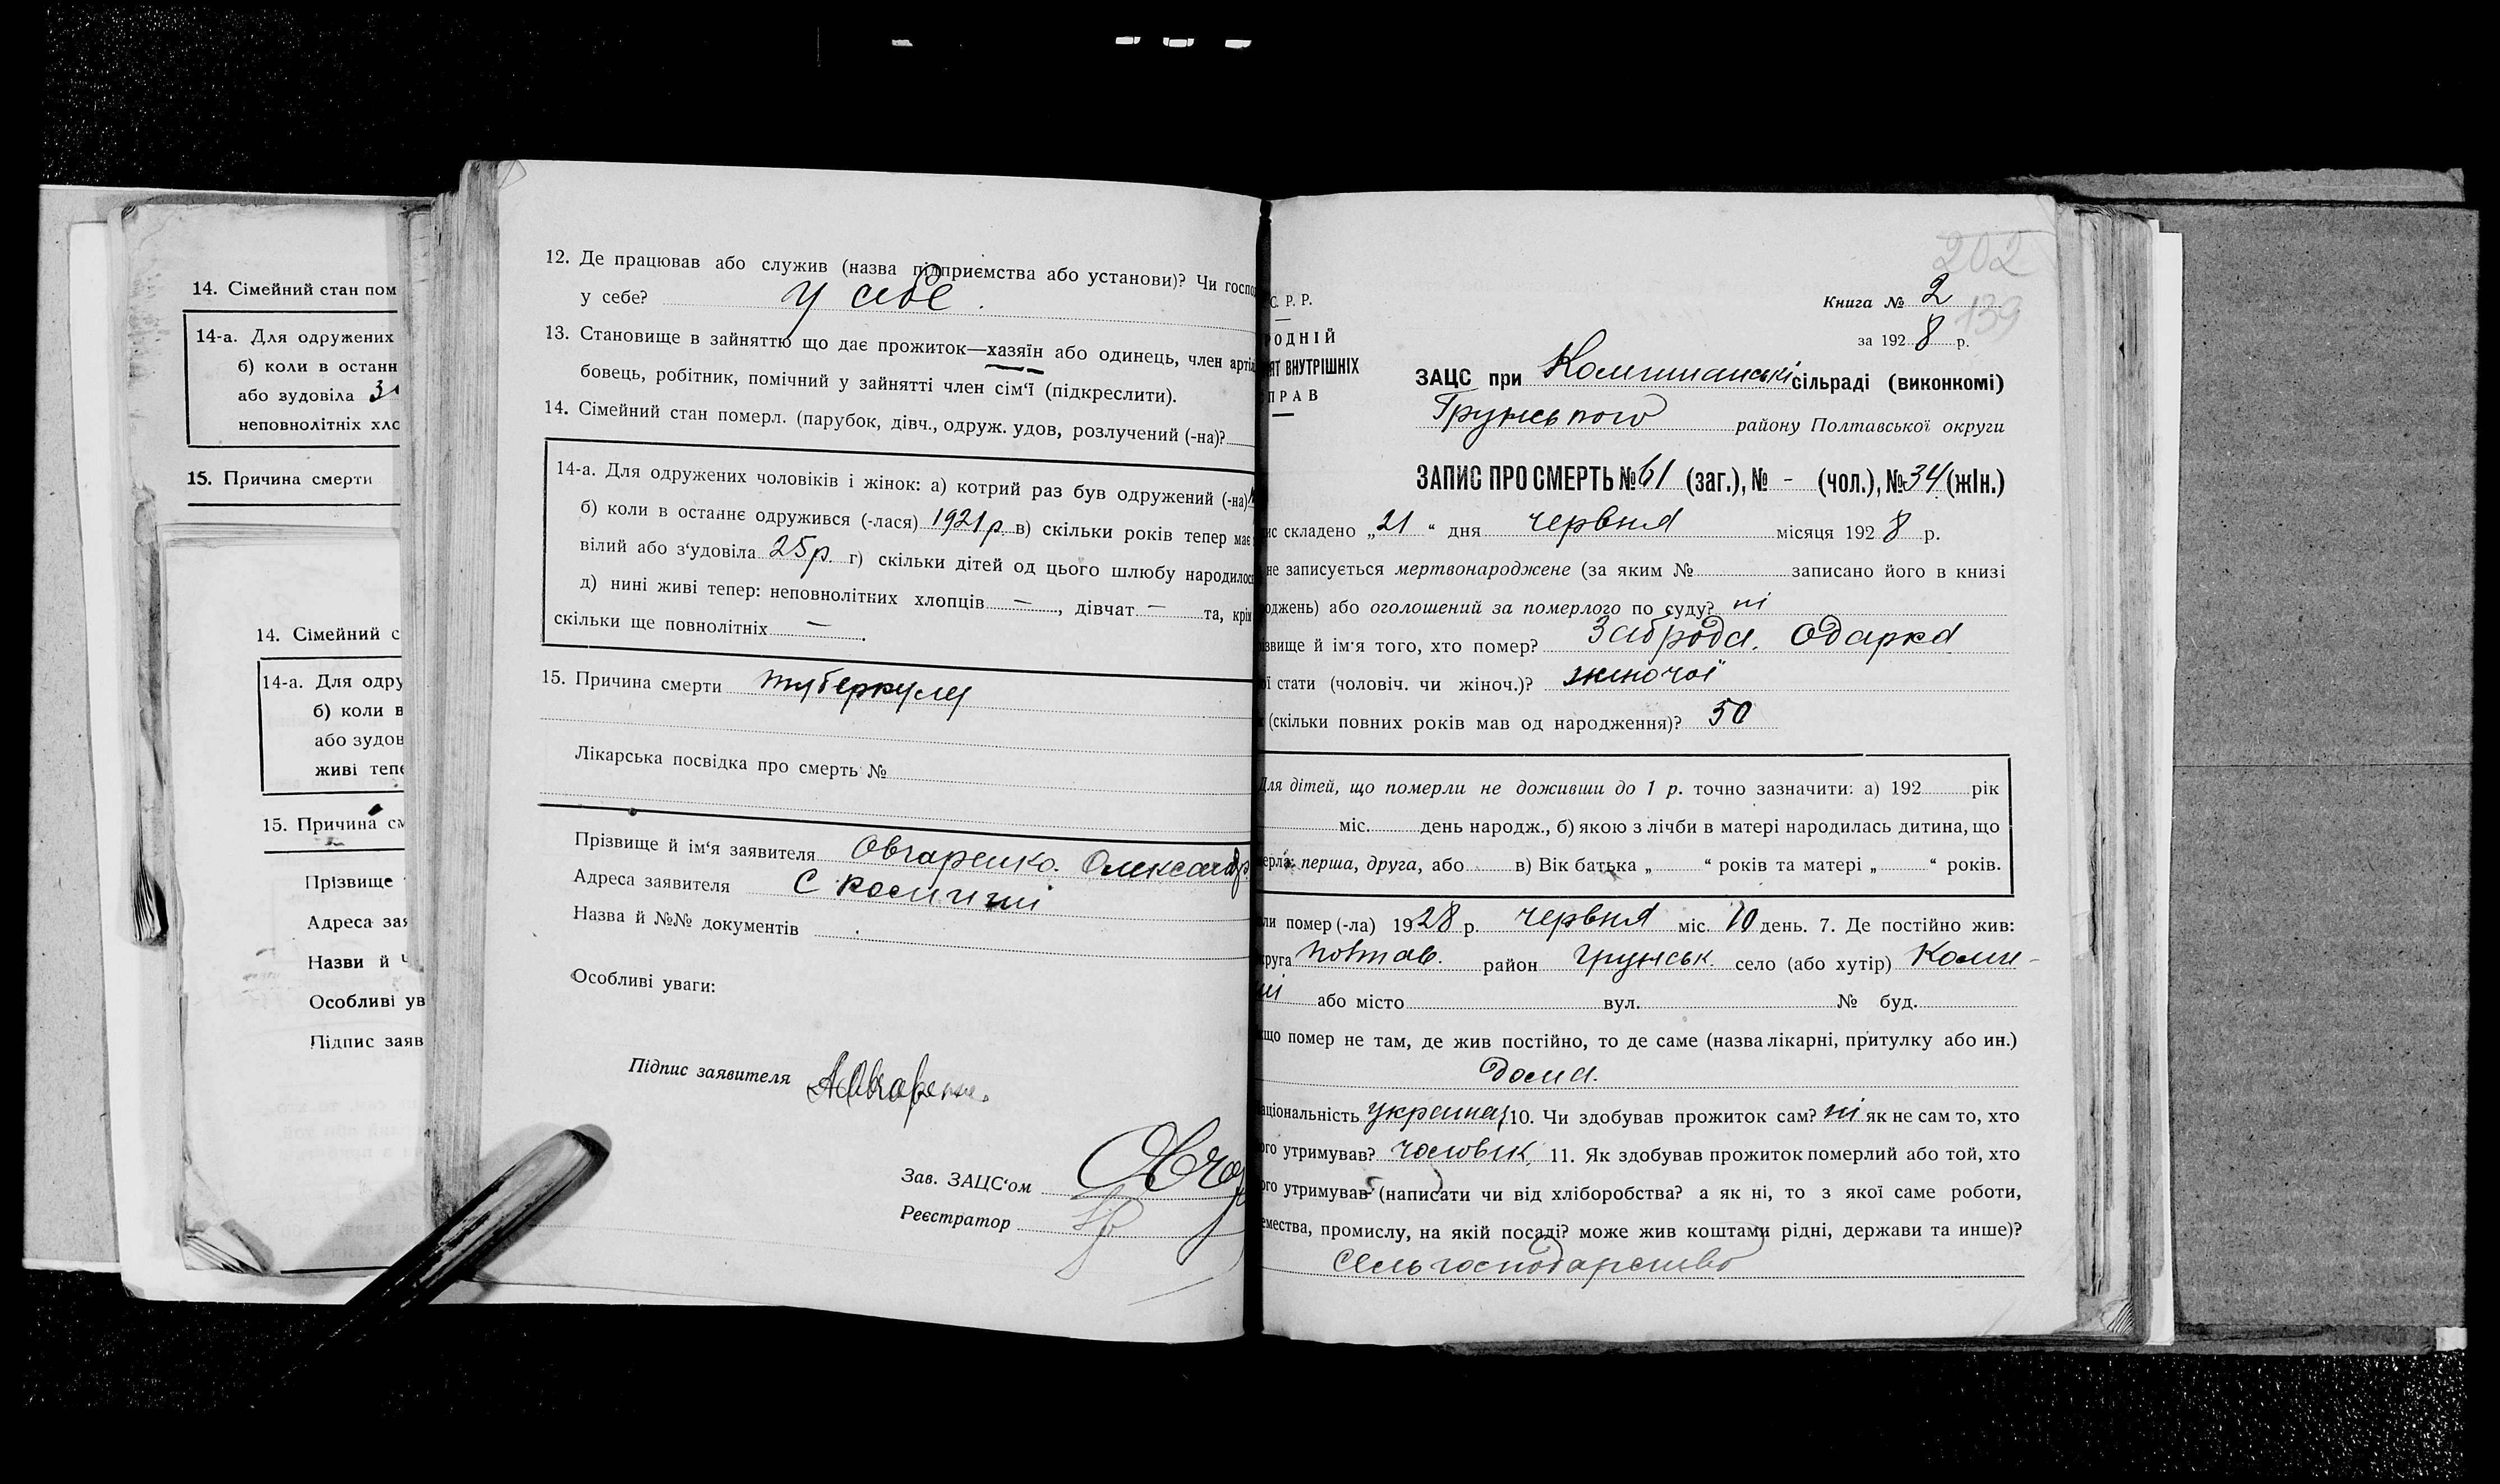 14. Сімейний стан пом
14-а. Для одружених
б) коли в останн
або зудовіла
неповнолітніх хло
15. Причина смерти
14. Сімейний с
14-а. Для одру
б) коли в
або зудов
живі тепе
15. Причина см
Прізвище
Адреса зая
Назви й
Особливі ув
Підпис заяв
12. Де працював або служив (назва підприємства або установи)? Чи госпо
у себе? у себе.
13. Становище в зайняттю що дає прожиток—хазяїн або одинець, член арті
бовець, робітник, помічний у зайнятті член сім'ї (підкреслити).
14. Сімейний стан померл. (парубок, дівч., одруж. удов, розлучений (-на)?
14-а. Для одружених чоловіків і жінок: а) котрий раз був одружений (-на)
б) коли в останнє одружився (-лася) 1921 р. в) скільки років тепер має
вілий або з'удовіла 25 р. г) скільки дітей од цього шлюбу народилос
д) нині живі тепер: неповнолітних хлопців — , дівчат — та, крім
скільки ще повнолітніх — .
15. Причина смерти туберкульу
Лікарська посвідка про смерть №
Прізвище й ім'я заявителя Овчаренко. Олександр
Адреса заявителя с комиші
Назва й №№ документів
Особливі уваги:
Підпис заявителя АОвчарен
Зав. ЗАЦС'ом
Реєстратор
202
139
С. Р. Р.
РОДНІЙ
ЯТ ВНУТРІШНІХ
ПРАВ
Книга № 2
за 1928 р.
ЗАЦС при Комишанські сільраді (виконкомі)
Грунського району Полтавської округи
ЗАПИС ПРО СМЕРТЬ № 61 (заг.), № - (чол.), № 34 (жін.)
ис складено „21“ дня червня місяця 1928 р.
не записується мертвонароджене (за яким № записано його в книзі
оджень) або оголошений за померлого по суду? ні
звище й ім'я того, хто помер? Заброда. Одарка
ої стати (чоловіч. чи жіноч.)? жіночої
к (скільки повних років мав од народження)? 50
Для дітей, що померли не доживши до 1 р. точно зазначити: а) 192 рік
міс. день народж., б) якою з лічби в матері народилась дитина, що
ерла: перша, друга, або в) Вік батька „ “ років та матері „ “ років.
ли помер (-ла) 1928 р. червня міс. 10 день. 7. Де постійно жив:
круга Полтав. район Грунськ. село (або хутір) Коми-
ші або місто вул. № буд.
що помер не там, де жив постійно, то де саме (назва лікарні, притулку або ин.)
дома.
аціональність україн 10. Чи здобував прожиток сам? ні як не сам то, хто
ого утримував? чоловік, 11. Як здобував прожиток померлий або той, хто
ого утримував (написати чи від хліборобства? а як ні, то з якої саме роботи,
емества, промислу, на якій посаді? може жив коштами рідні, держави та инше)?
Сельгосподарство